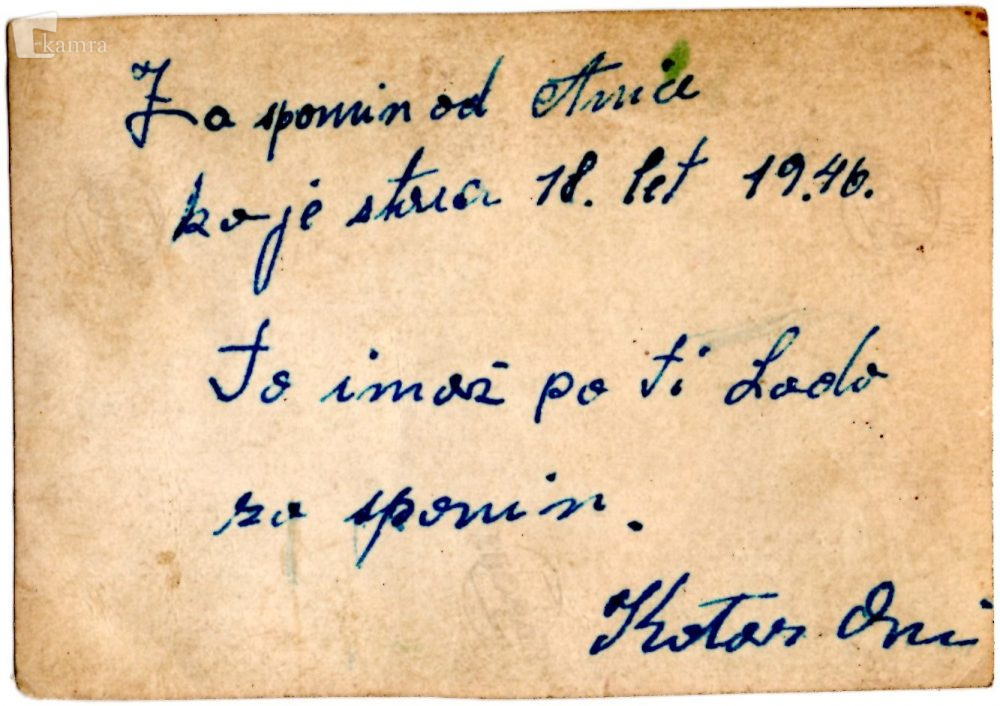 kamra
Za spomin od Anice
ko je stara 18. let 19.46.
To imaš pa ti Lado
za spomin.
Kotar Ani